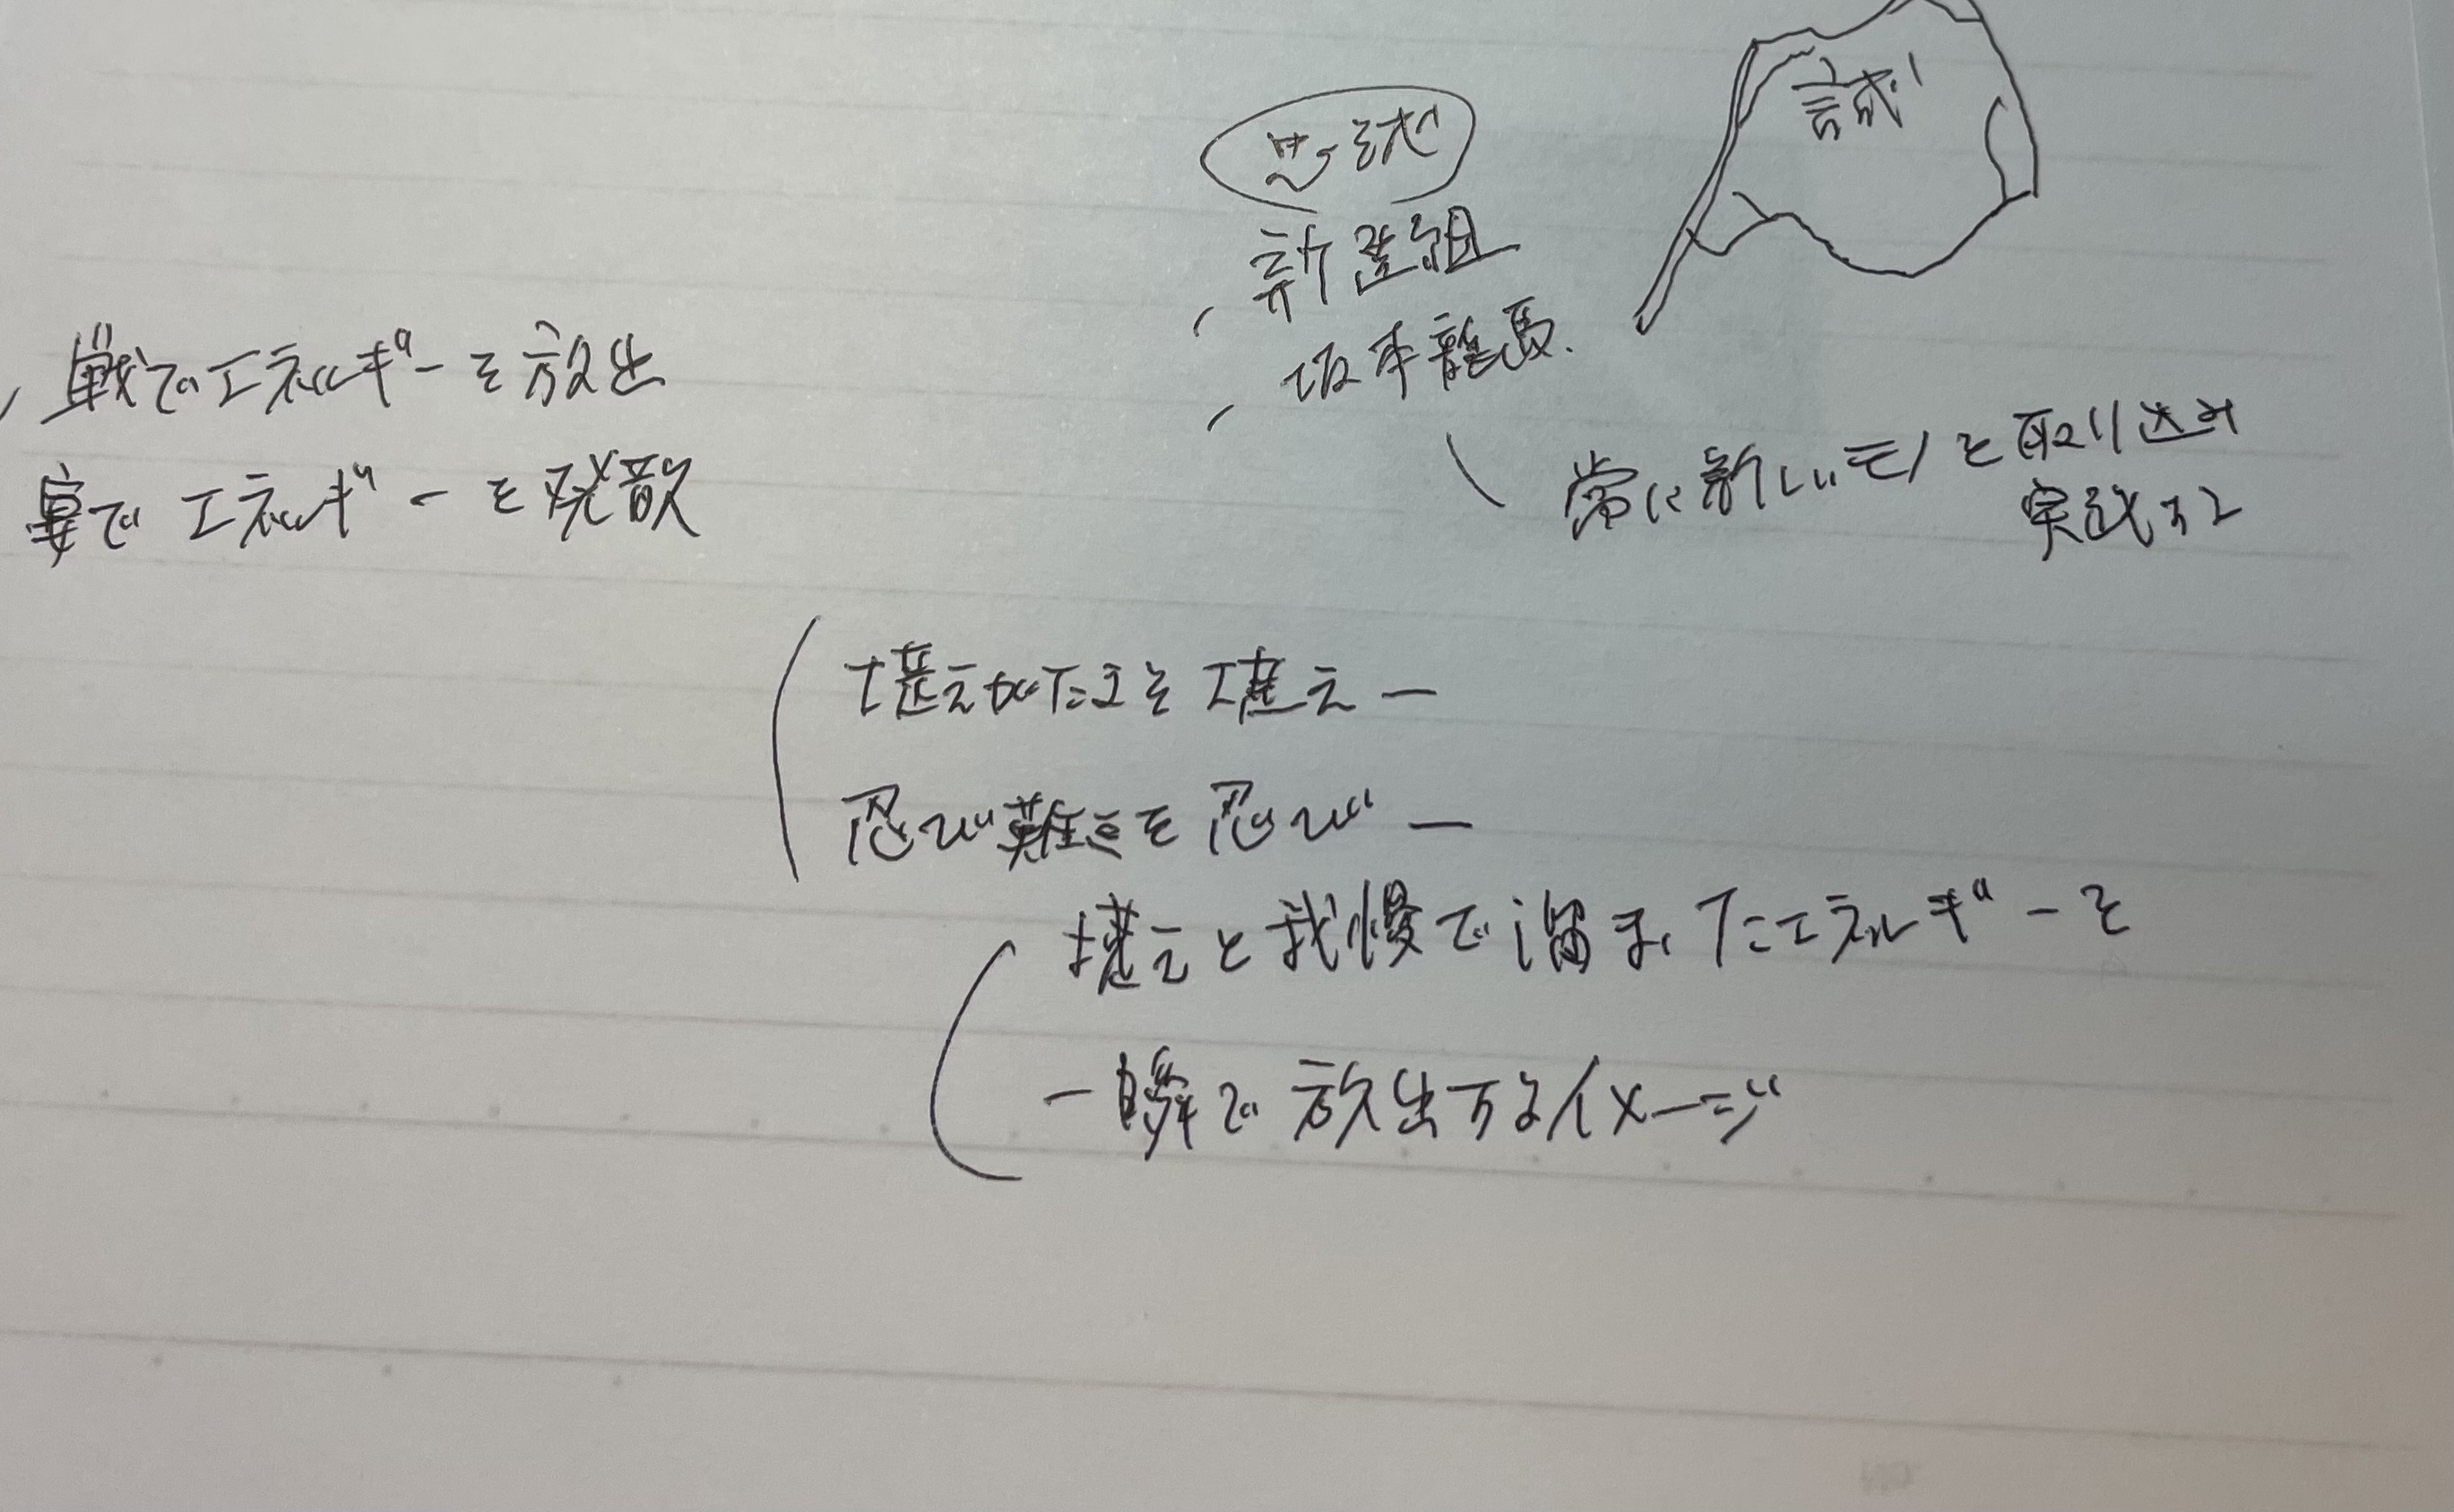 誠
新選組
坂本龍馬
常に新しいモノを取り込み
実践する
戦でエネルギーを放出
宴でエネルギーを発散
堪えがたきを堪えー
忍び難きを忍びー
堪えと我慢で溜まったエネルギーを
一瞬で放出するイメージ